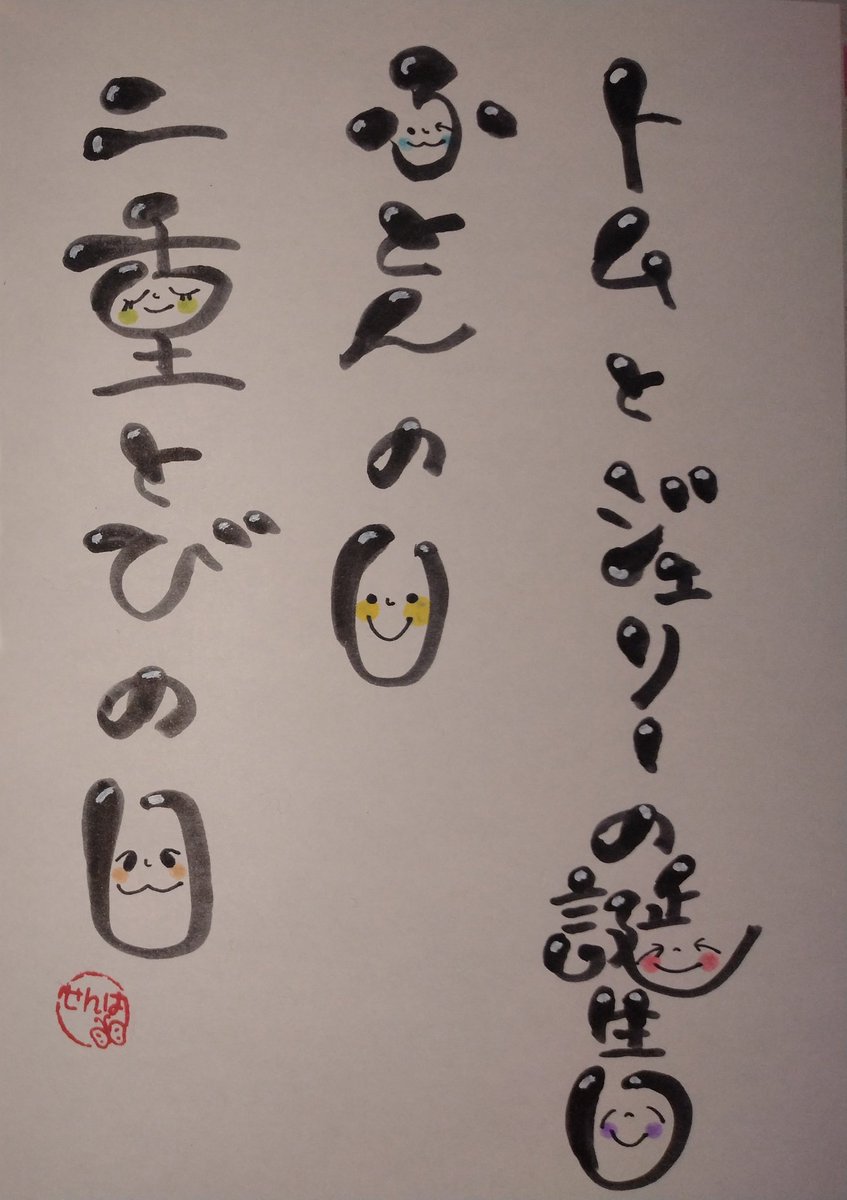 トムとジェリーの誕生日
ふとんの日
二重とびの日
せんは